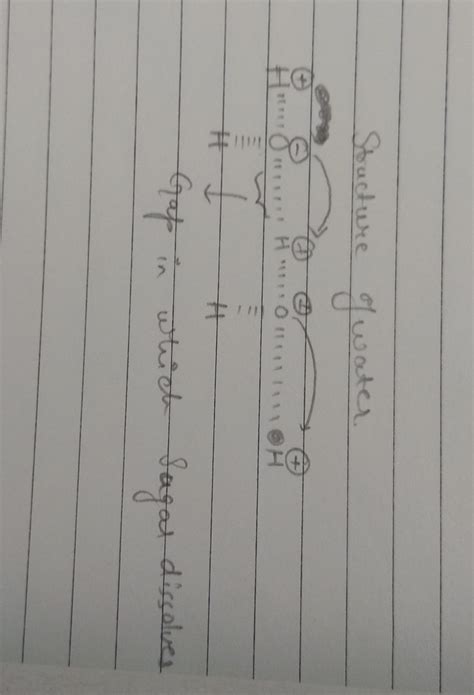 Structure of water.
⊕ ⊖ ⊕ ⊕ ⊕
H····O·······H····O·········H
H H
Gap in which Sugar dissolves